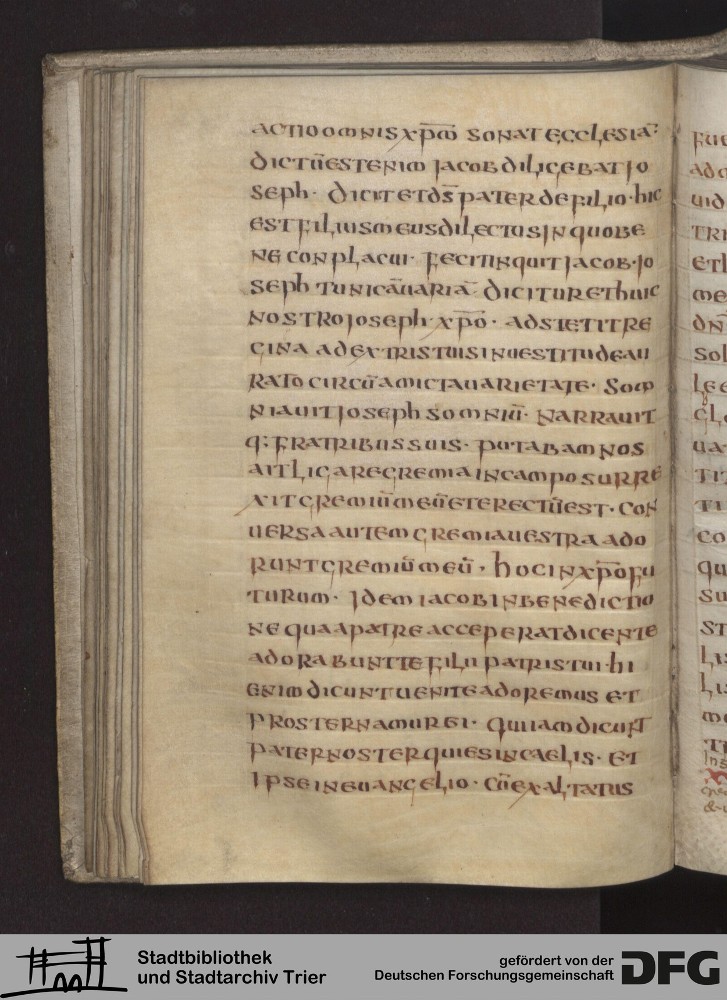 actio omnis xp̄m̄ sonat ecclesiā:
dictū est enim jacob diligebat jo
seph· dicit et d̄s pater de filio· hic
est filius meus dilectus in quo be
ne conplacui· fecit inquit jacob· jo
seph tunicā uariā· dicitur et huic
nostro joseph xp̄o· adstetit re
gina ad extris tuis in uestitu de au
rato circū amicta uarietate· som
niauit joseph somniū· narrauit
q: fratribus suis· putabam nos
ait ligare gremia in campo surre
xit gremiū meū et erectū est· con
uersa autem gremia uestra ado
runt gremiū meū· hoc in xp̄o fu
turum· idem iacob in benedictio
ne qua a patre acceperat dicente
adorabunt te filii patris tui· hi
enim dicunt uenite adoremus et
prosternamur ei· qui iam dicunt
pater noster qui es in caelis· et
ipse in euangelio· cū exaltatus
fue
ado
uid
tri
et
me
dn̄
sol
lee
glo
ua
ti
ti
co
qu
su
st
lis
lis
mo
Stadtbibliothek
und Stadtarchiv Trier
gefördert von der
Deutschen Forschungsgemeinschaft
DFG